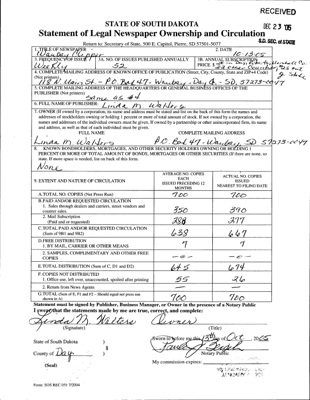 RECEIVED
DEC 23 '05
S.D. SEC. OF STATE
STATE OF SOUTH DAKOTA
Statement of Legal Newspaper Ownership and Circulation
Return to: Secretary of State, 500 E. Capitol, Pierre, SD 57501-5077
1. TITLE OF NEWSPAPER -
2. DATE
Waubay Clipper
10-13-05
3. FREQUENCY OF ISSUE
3A. NO. OF ISSUES PUBLISHED ANNUALLY
3B. ANNUAL SUBSCRIPTION PRICE $
Weekly
52
4. COMPLETE MAILING ADDRESS OF KNOWN OFFICE OF PUBLICATION (Street, City, County, State and ZIP+4 Code) (Not printers)
118 N. Main St. - P.O. Box 47 - Waubay, Day, SD 57273-0047
5. COMPLETE MAILING ADDRESS OF THE HEADQUARTERS OR GENERAL BUSINESS OFFICES OF THE PUBLISHER (Not printers)
Same as #4
6. FULL NAME OF PUBLISHER:
Linda M. Walters
7. OWNER (If owned by a corporation, its name and address must be stated and also immediately thereunder the names and addresses of stockholders owning or holding 1 percent or more of total amount of stock. If not owned by a corporation, the names and addresses of the individual owners must be given. If owned by a partnership or other unincorporated firm, its name and address, as well as that of each individual must be given.
FULL NAME
COMPLETE MAILING ADDRESS
Linda M. Walters
P.O. Box 47 - Waubay, SD 57273-0047
8. KNOWN BONDHOLDERS, MORTGAGEES, AND OTHER SECURITY HOLDERS OWNING OR HOLDING 1 PERCENT OR MORE OF TOTAL AMOUNT OF BONDS, MORTGAGES OR OTHER SECURITIES (If there are none, so state. If more space is needed, list on back of this form.
None
9. EXTENT AND NATURE OF CIRCULATION
AVERAGE NO. COPIES EACH ISSUED PRECEDING 12 MONTHS
ACTUAL NO. COPIES ISSUED NEAREST TO FILING DATE
A. TOTAL NO. COPIES (Net Press Run)
700
700
B. PAID AND/OR REQUESTED CIRCULATION
1. Sales through dealers and carriers, street vendors and counter sales.
350
390
2. Mail Subscription (Paid and or requested)
288
277
C. TOTAL PAID AND/OR REQUESTED CIRCULATION (Sum of 9B1 and 9B2)
638
667
D. FREE DISTRIBUTION
1. BY MAIL, CARRIER OR OTHER MEANS
7
7
2. SAMPLES, COMPLIMENTARY AND OTHER FREE COPIES
-0-
-0-
E. TOTAL DISTRIBUTION (Sum of C, D1 and D2)
645
674
F. COPIES NOT DISTRIBUTED
1. Office use, left over, unaccounted, spoiled after printing
55
26
2. Return from News Agents
G. TOTAL (Sum of E, F1 and F2 - Should equal press run shown in A)
700
700
Statement must be signed by Publisher, Business Manager, or Owner in the presence of a Notary Public
I swear that the statements made by me are true, correct, and complete:
Linda M. Walters
Owner
(Signature)
(Title)
State of South Dakota )
County of Day )
Sworn to before me this 13th day of Oct 2005
Notary Public
(Seal)
My commission expires:
Form: SOS REC 051 7/2004